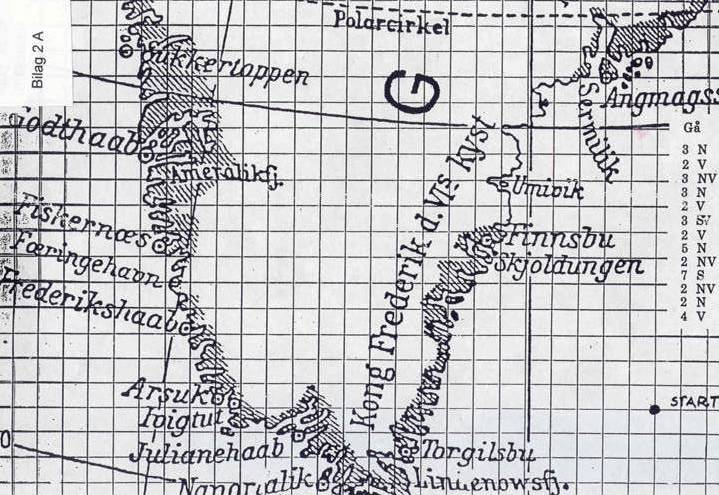 Bilag 2 A
Polarcirkel
Sukkertoppen
G
Angmagss
Sermilik
Godthaab
Gå
3 N
2 V
3 NV
3 N
2 V
3 SV
2 V
5 N
2 NV
7 S
2 NV
2 N
4 V
Ameralikfj.
Umivik
Kong Frederik d. VIs kyst
Fiskernæs
Færingehavn
Frederikshaab
Finnsbu
Skjoldungen
START
Arsuk
Ivigtut
Julianehaab
Nanortalik
Torgilsbu
Lindenowsfj.
0